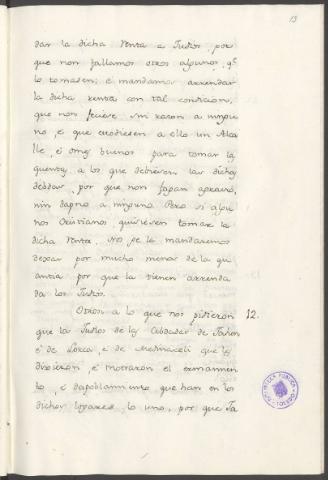 13
dar la dicha renta a Judios, por
que non fallamos otros algunos, qe
lo tomasen; é mandamos arrendar
la dicha renta con tal condicion,
que non ficiese sin razon a ningu
no, é que escodiesen a ello un Alca
lle, é omes buenos para tomar la
quenta, a los que debiesen las dichas
debdas, por que non fagan agravio,
nin dapno a ninguno. Pero si algu
nos Christianos quisieren tomar la
dicha renta, Nos ge la mandaremos
dexar por mucho menos de la qu
antia por que la tienen arrenda
da los Judios.
Otrosi a lo que nos pidieron 12.
que los Judios de las Cibdades de
é de Lorca, é de Medinaceli que les
dixeron, é mostraron el ermamien
to, é despoblamiento, que han en los
dichos logares lo uno, por que Ja
BIBLIOTECA PUBLICA
TOLEDO